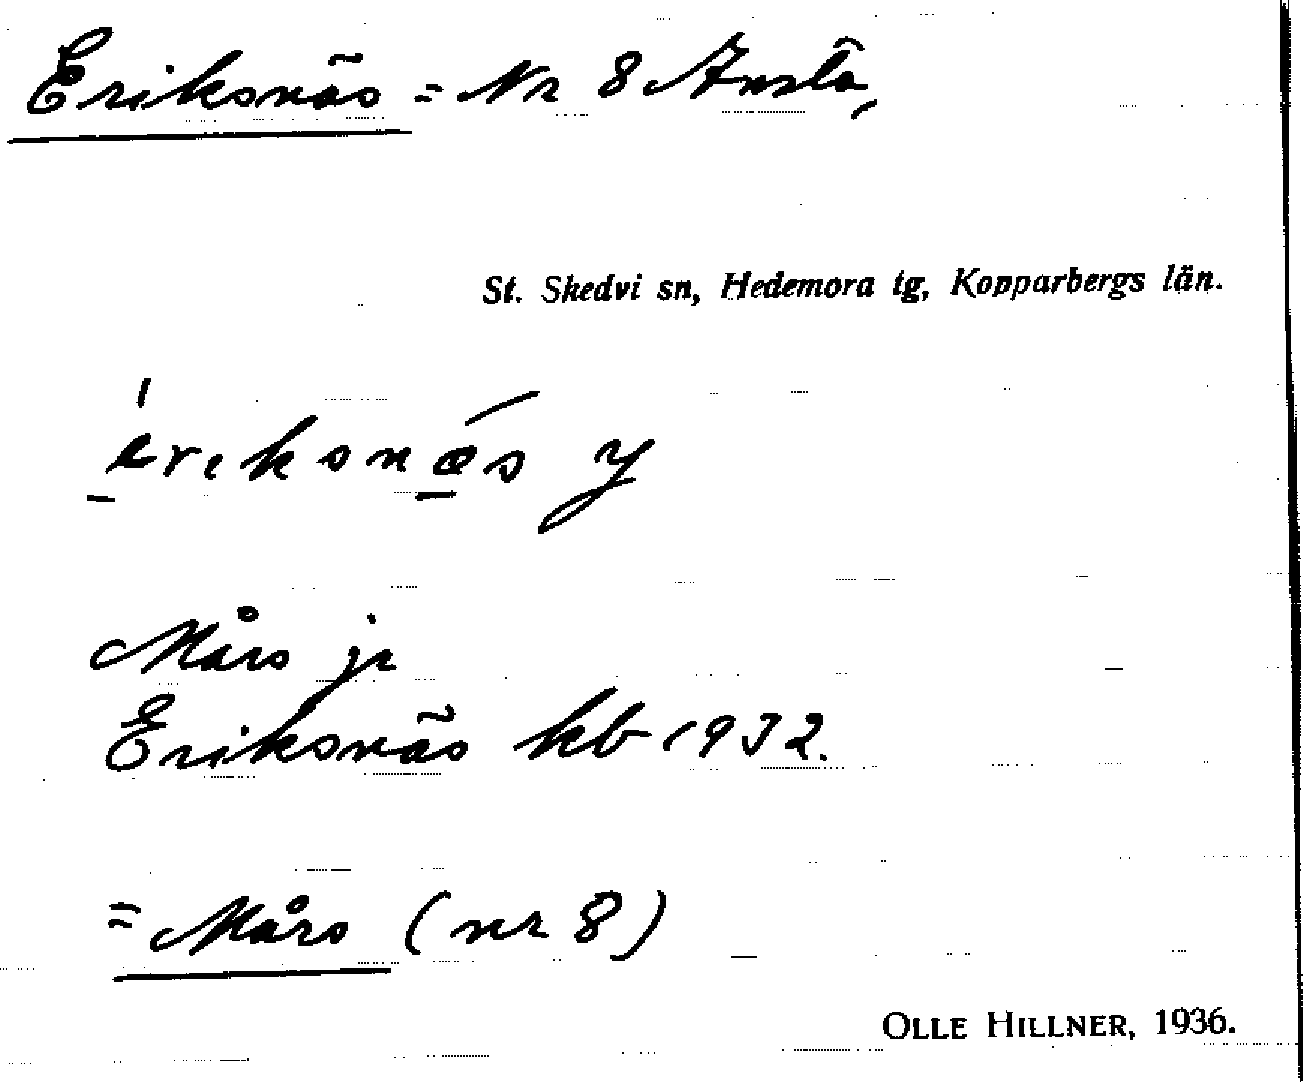 Eriksnäs = Nr 8 Ansta,
St. Skedvi sn, Hedemora tg, Kopparbergs län.
èriksnǽs y
Mårs jr
Eriksnäs kb 1932.
= Mårs (nr 8)
OLLE HILLNER, 1936.